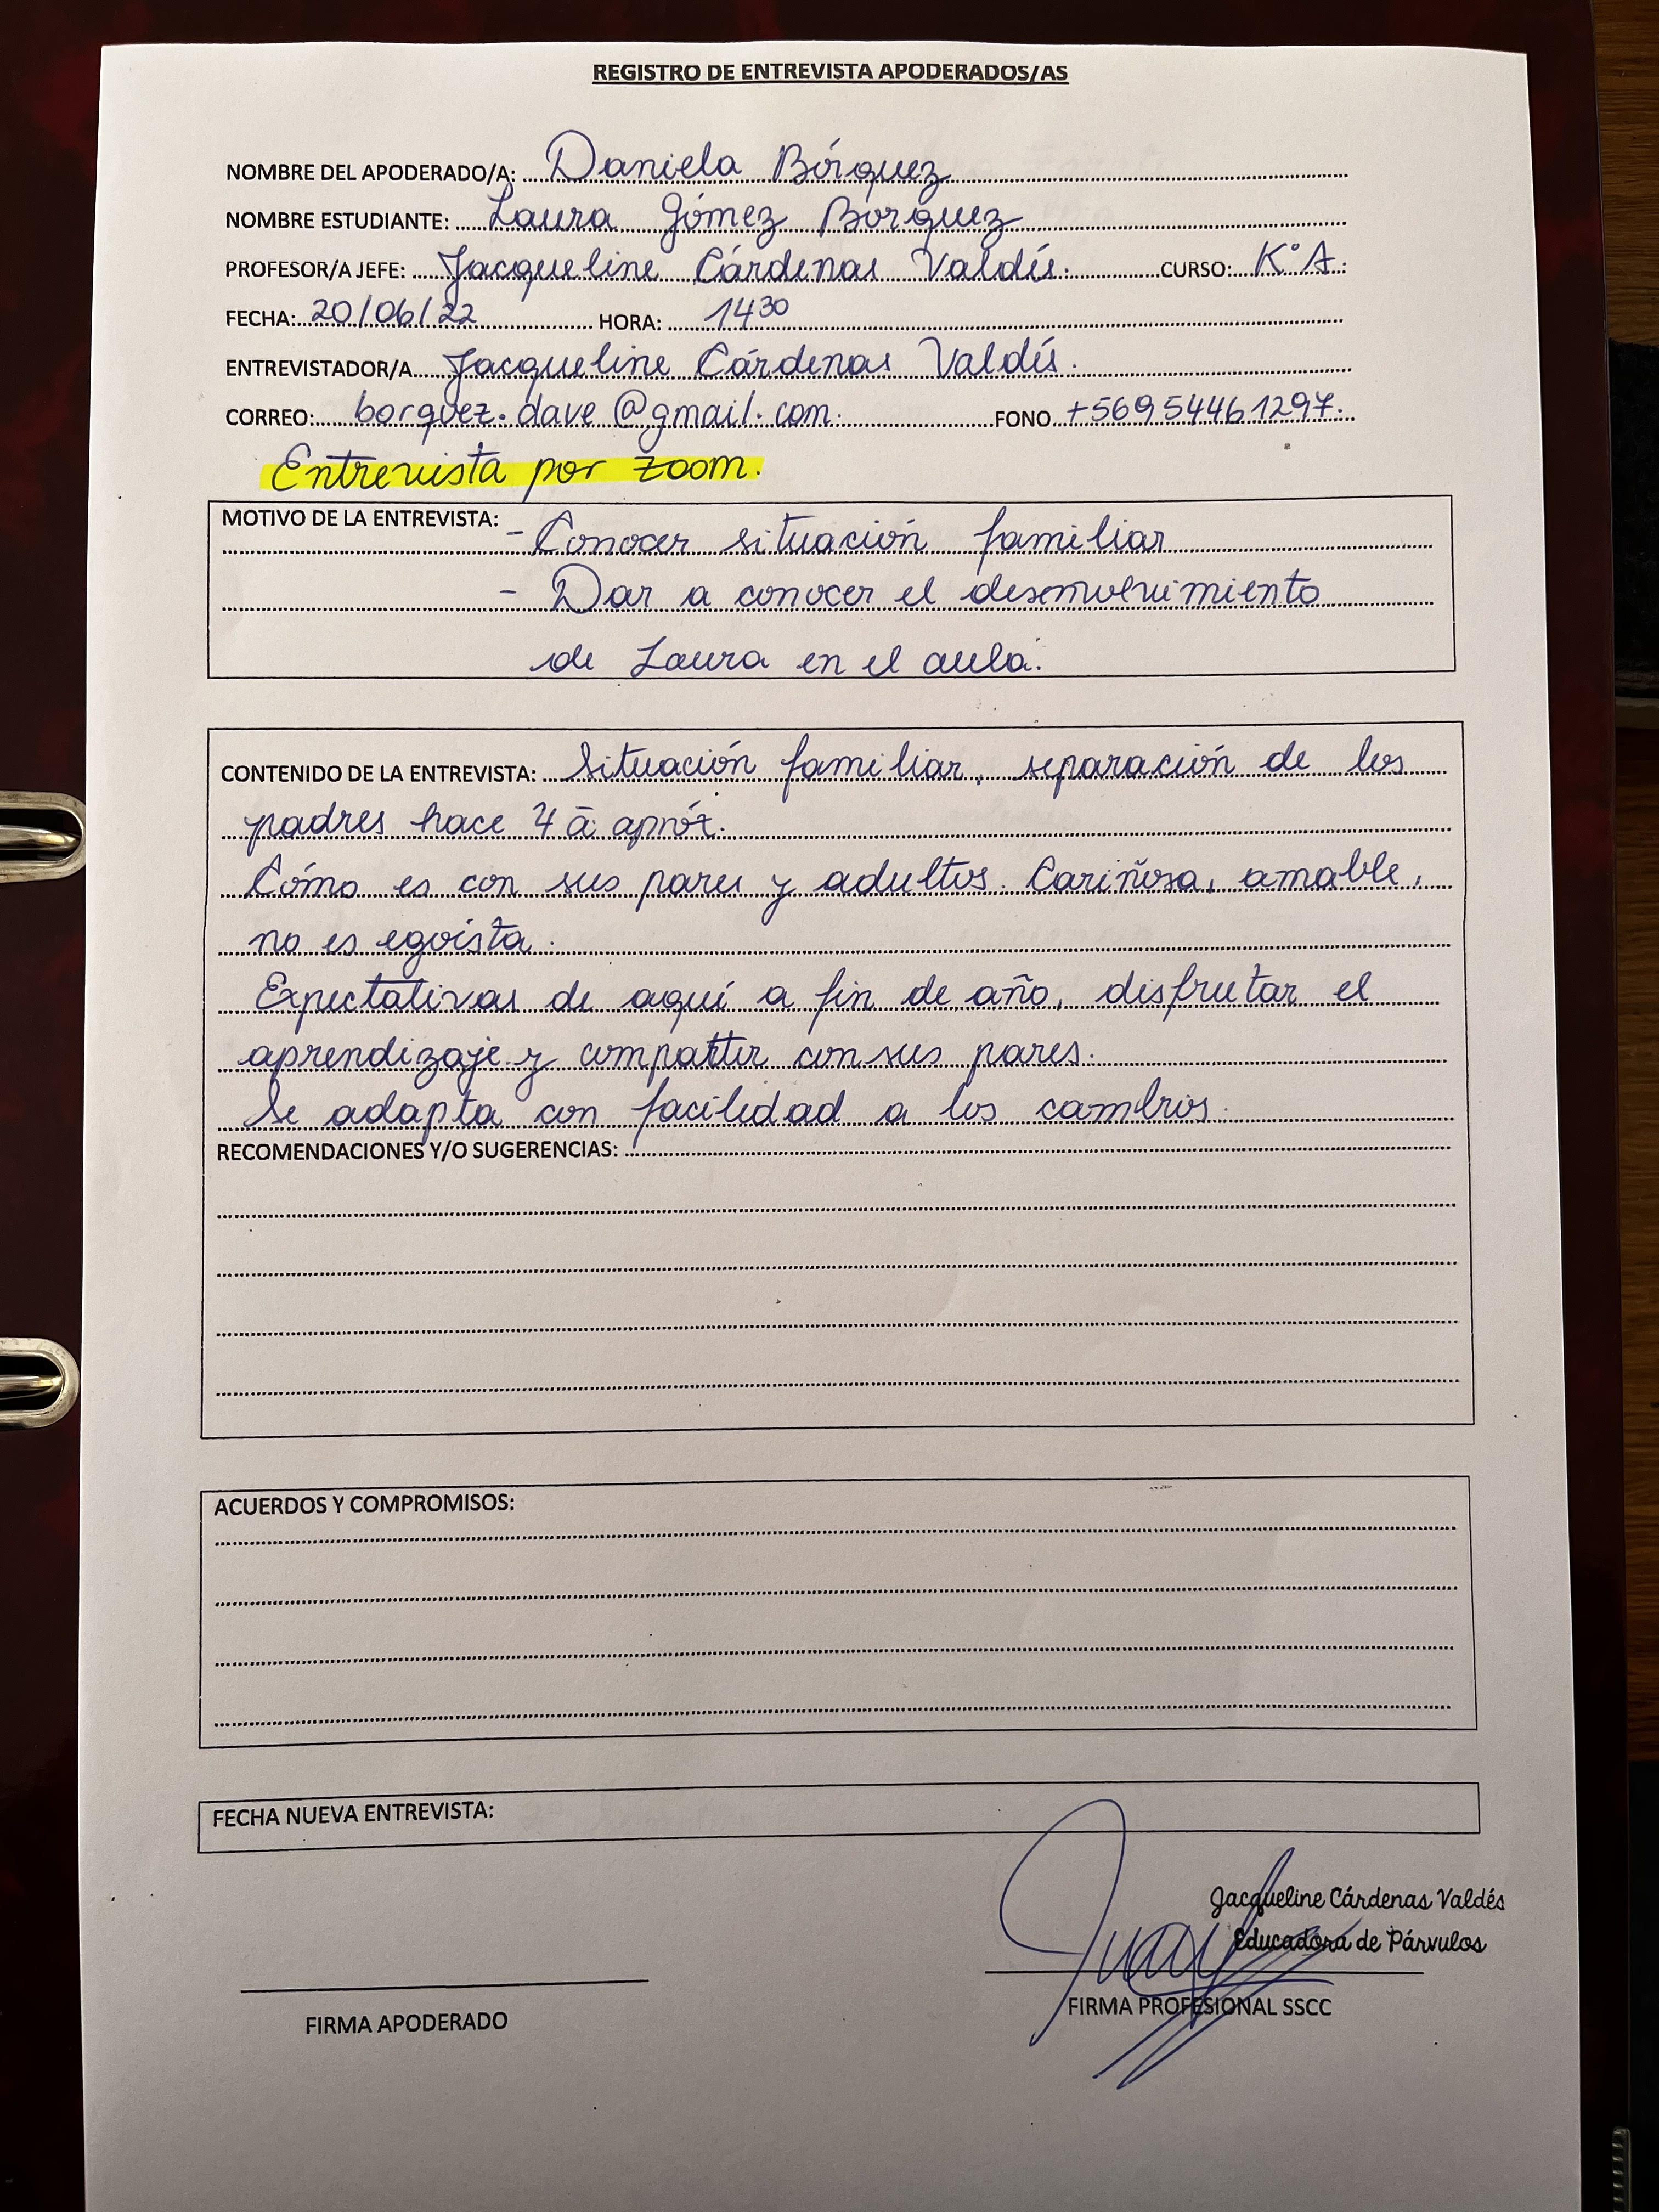 REGISTRO DE ENTREVISTA APODERADOS/AS
NOMBRE DEL APODERADO/A: Daniela Bórquez
NOMBRE ESTUDIANTE: Laura Gómez Bórquez
PROFESOR/A JEFE: Jacqueline Cárdenas Valdés. CURSO: K°A
FECHA: 20/06/22 HORA: 14 30
ENTREVISTADOR/A Jacqueline Cárdenas Valdés.
CORREO: borquez.dave@gmail.com. FONO +56954461297.
Entrevista por zoom.
MOTIVO DE LA ENTREVISTA: - Conocer situación familiar
- Dar a conocer el desenvolvimiento
de Laura en el aula.
CONTENIDO DE LA ENTREVISTA: Situación familiar, separación de los
padres hace 4 a apróx.
Cómo es con sus pares y adultos. Cariñosa, amable,
no es egoísta.
Expectativas de aquí a fin de año, disfrutar el
aprendizaje y compartir con sus pares.
Se adapta con facilidad a los cambios.
RECOMENDACIONES Y/O SUGERENCIAS:
ACUERDOS Y COMPROMISOS:
FECHA NUEVA ENTREVISTA:
Jacqueline Cárdenas Valdés
Educadora de Párvulos
FIRMA APODERADO FIRMA PROFESIONAL SSCC